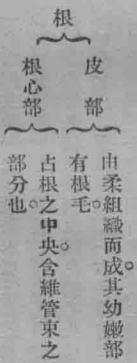 根
皮部
由柔組織而成。其幼嫩部
有根毛。
根心部
占根之中央。含維管束之
部分也。